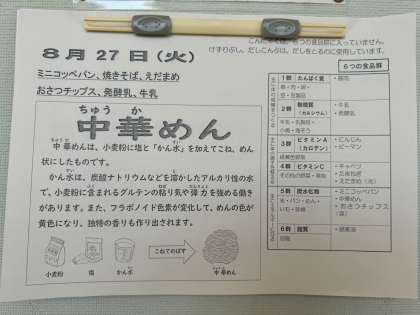 こんにゃくは、6つの食品群に入っていません。
けずりぶし、だしこんぶは、だしをとるのに使用しています。
8月27日(火)
ミニコッペパン、焼きそば、えだまめ
おさつチップス、発酵乳、牛乳
ちゅう か
中華めん
中華めんは、小麦粉に塩と「かん水」を加えてこね、めん
状にしたものです。
かん水は、炭酸ナトリウムなどを溶かしたアルカリ性の水
で、小麦粉に含まれるグルテンの粘り気や弾力を強める働き
があります。また、フラボノイド色素が変化して、めんの色が
黄色になり、独特の香りも作り出されます。
小麦粉
塩
かん水
こねてのばす
中華めん
6つの食品群
1群 たんぱく質
・豚肉
2群 無機質
(カルシウム)
牛乳・乳製品・
小魚・海そう
・牛乳
・発酵乳
3群 ビタミンA
(カロテン)
緑黄色野菜
・にんじん
・ピーマン
4群 ビタミンC
その他の野菜・果物
・キャベツ
・たまねぎ
・えだまめ
5群 炭水化物
米・パン・めん・
いも・砂糖
・ミニコッペパン
・中華めん
・おさつチップス
6群 脂質
油脂